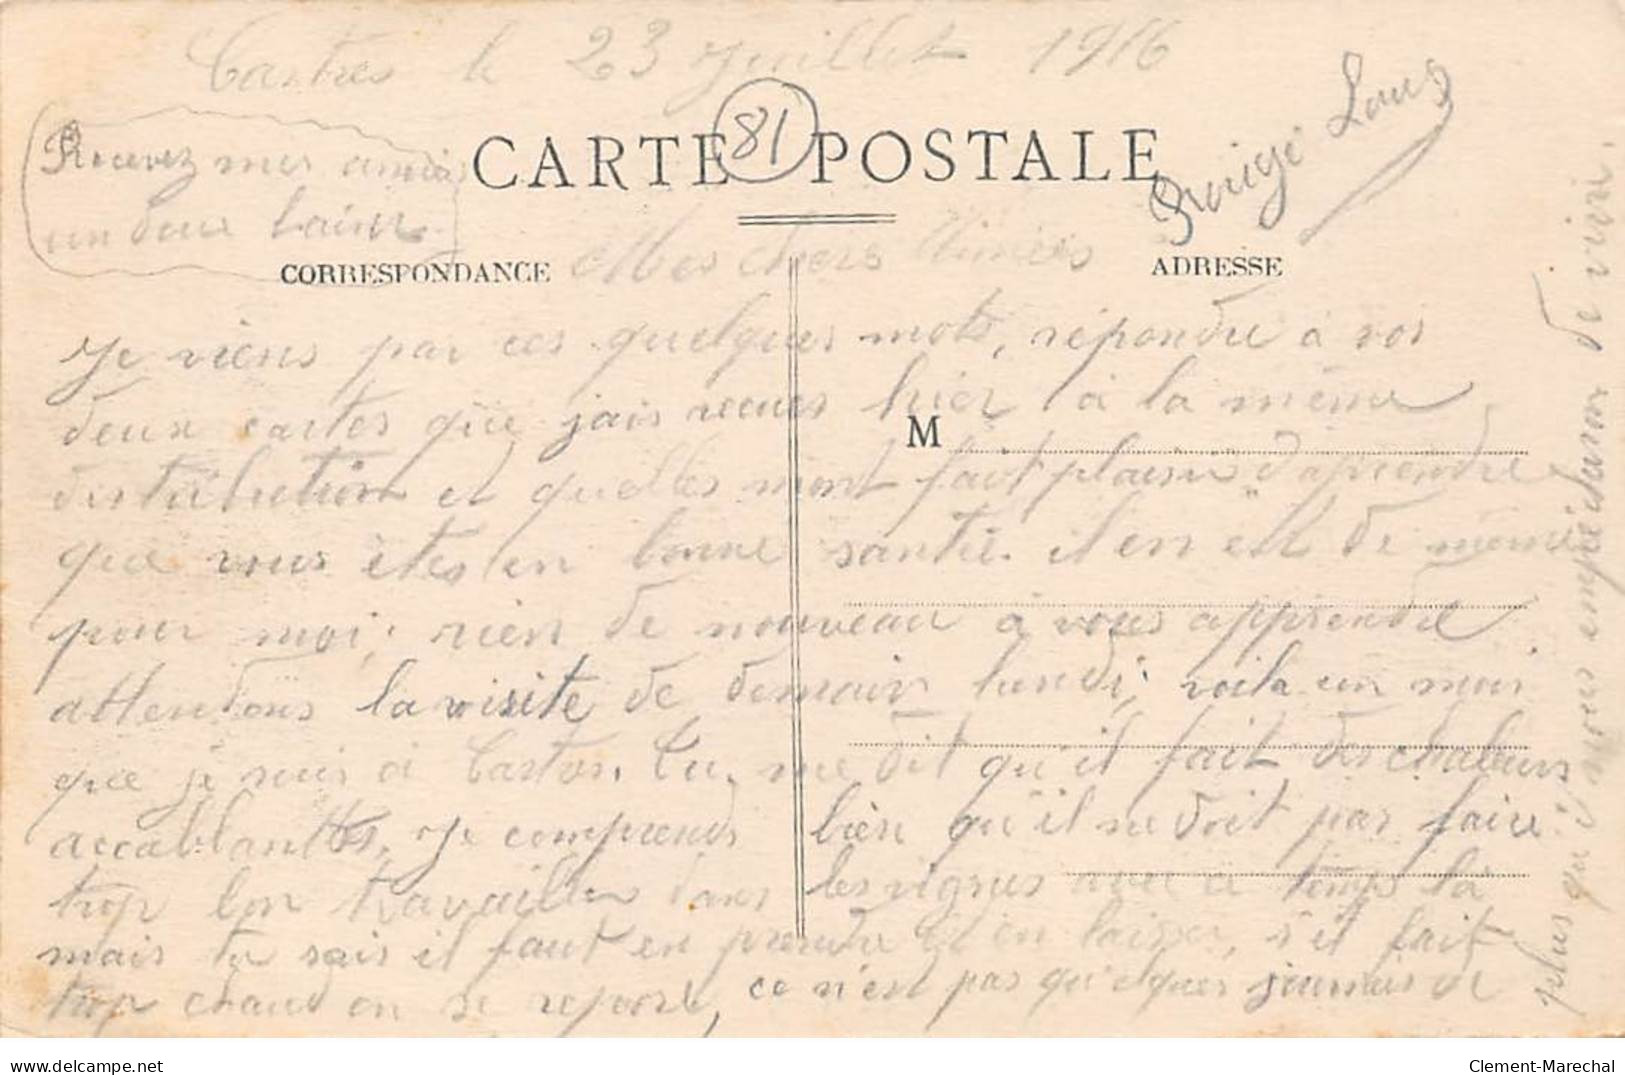 Castres le 23 Juillet 1916
81
CARTE POSTALE
Recevez mes amis
un doux baiser
CORRESPONDANCE
ADRESSE
Mes chers Aimées
Je viens par ces quelques mots, répondre à vos
deux cartes que jais recues hier à la même
M
distribution et quelles mont fait plaisir d'aprendre
que vous êtes en bonne santé. il en est de même
pour moi; rien de nouveau à vous apprendre
attendons la visite de demain lundi; voila un mois
que je suis à Castres. Tu me dit qu'il fait des chaleurs
accablantes. Je comprends bien qu'il ne doit pas faire
trop bon travailler dans les vignes avec ce temps là
mais tu sais il faut en prendre et en laisser, s'il fait
trop chaud on se repose, ce n'est pas quelques journées de
plus qui nous empêcheron de vivre.
Delcampe.net
Clement-Marechal